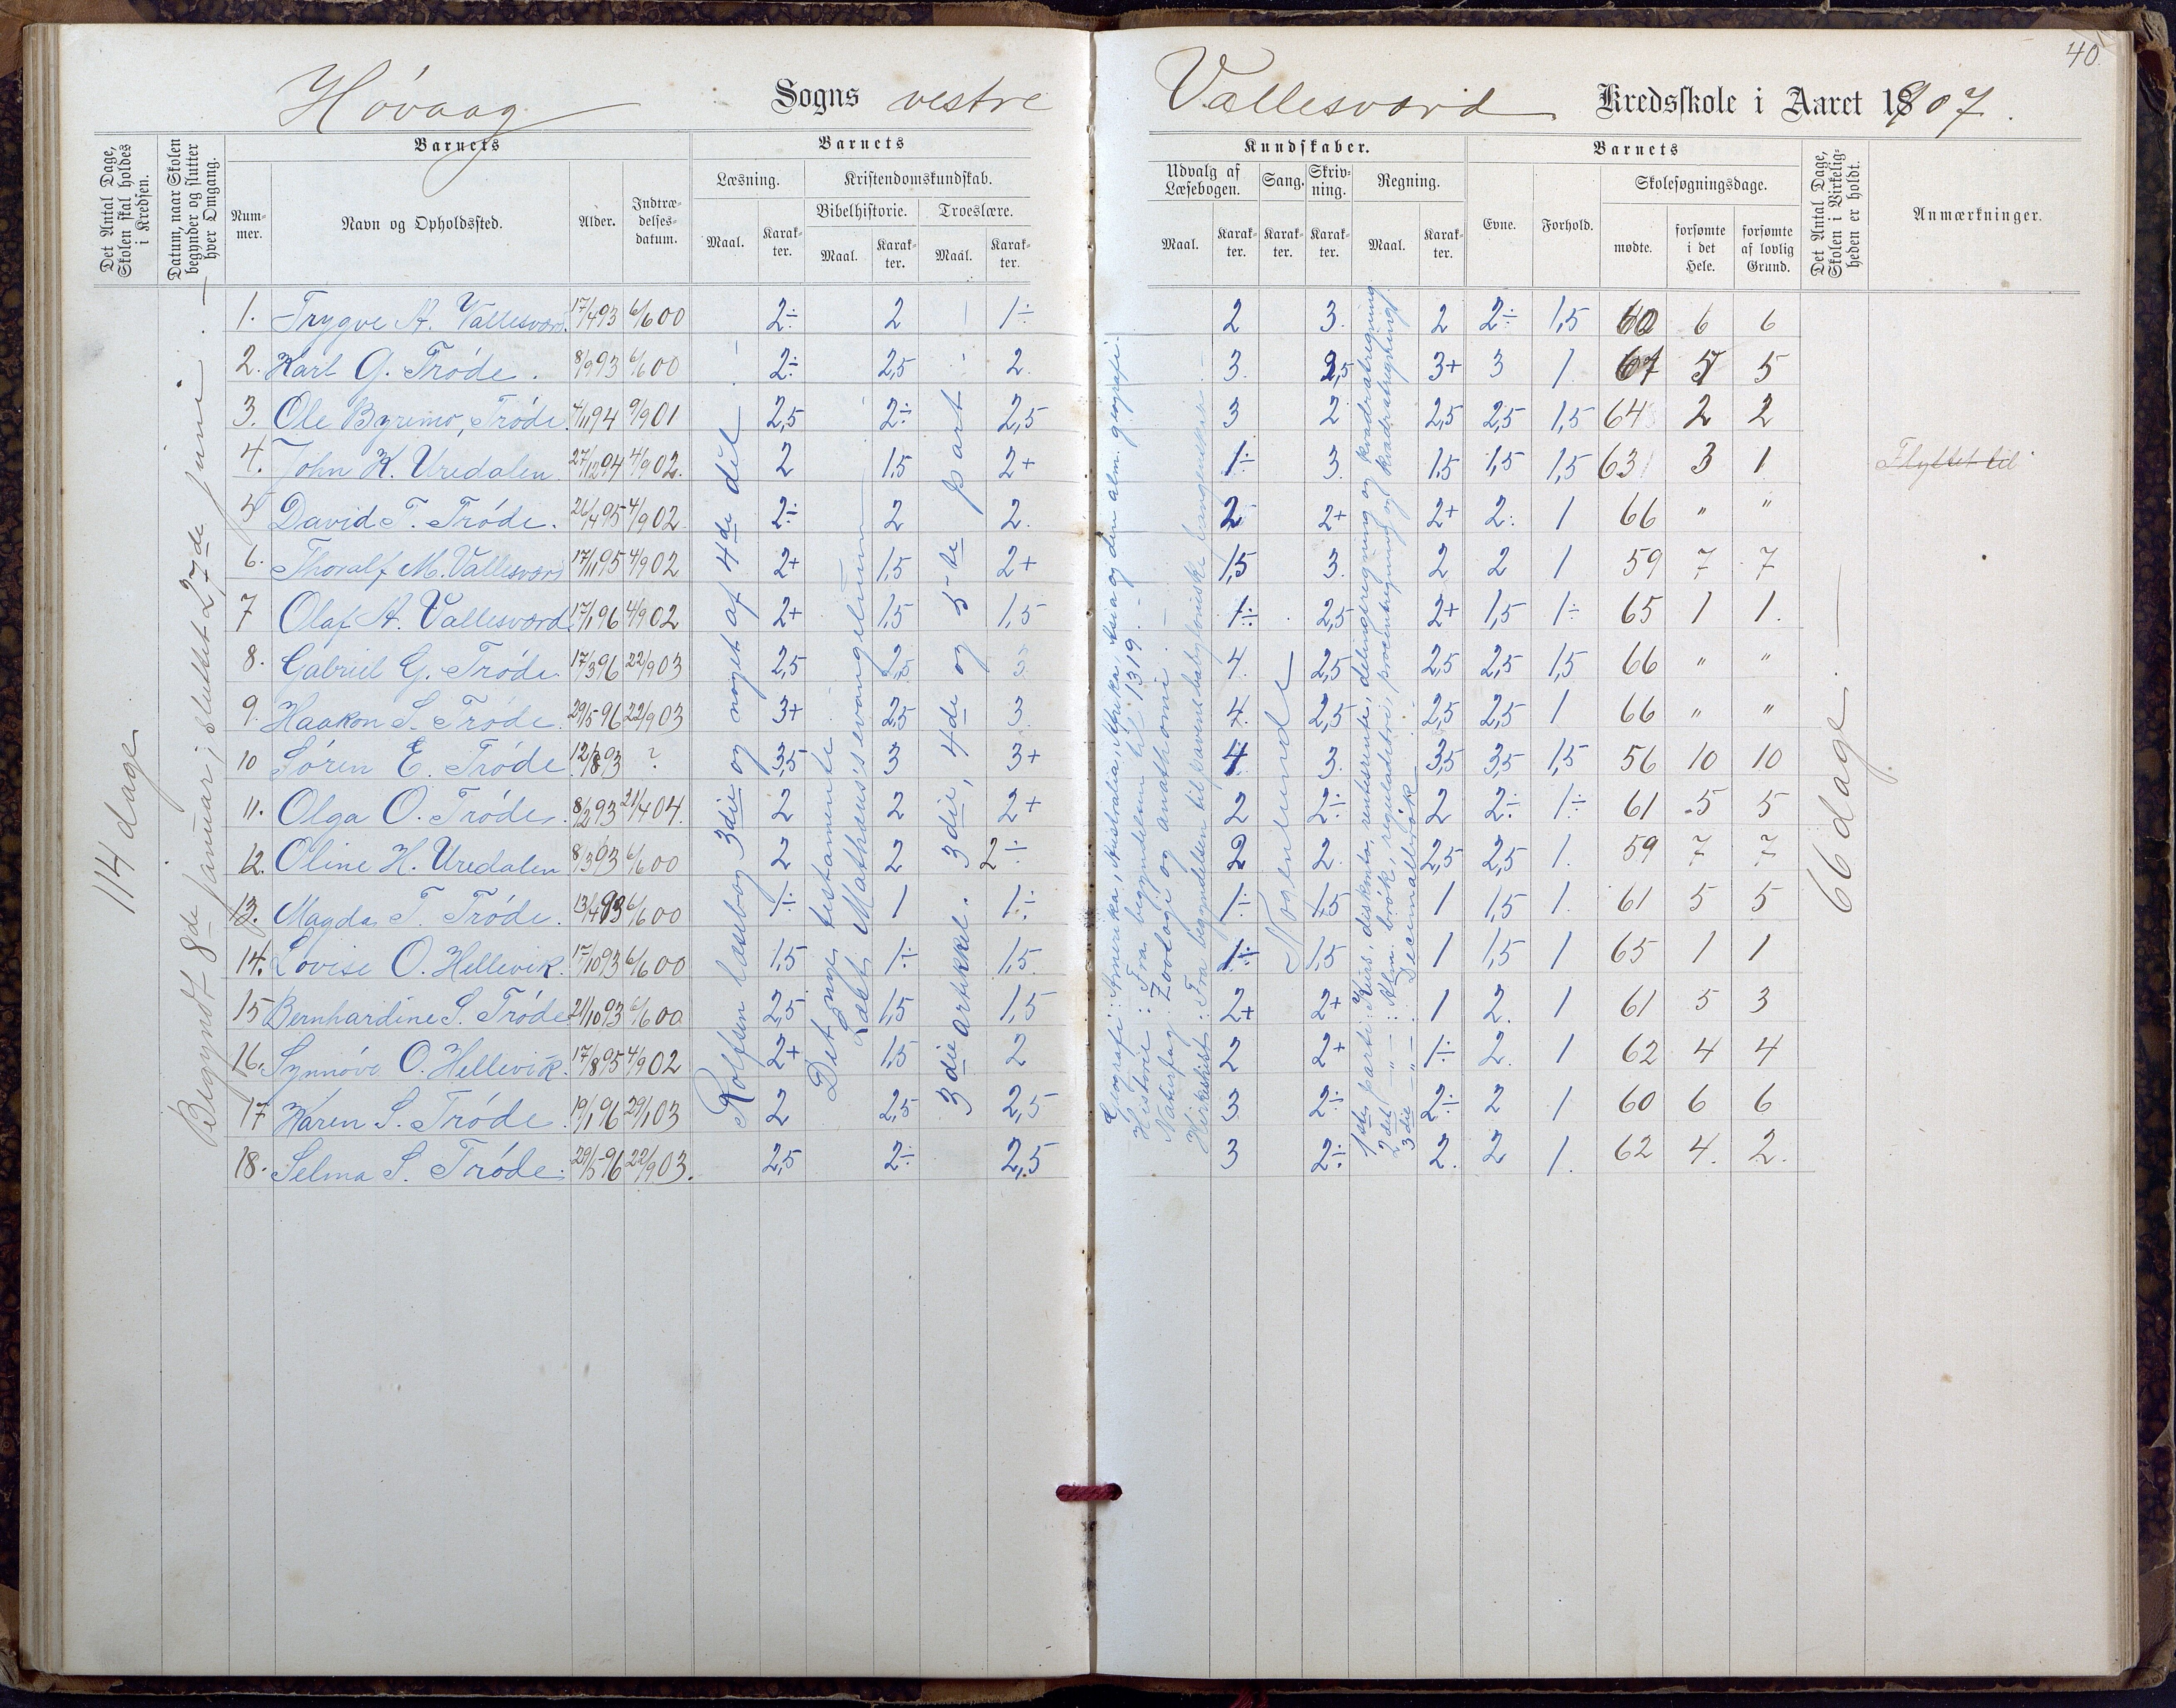 40.
Høvaag Sogns vestre Vallesværd Kredsskole i Aaret 1907.
Det Antal Dage, Skolen skal holdes i Kredsen.
Datum, naar Skolen begynder og slutter hver Omgang.
Barnets
Nummer.
Navn og Opholdssted.
Alder.
Indtrædelsesdatum.
Barnets
Læsning.
Maal.
Karakter.
Kristendomskundskab.
Bibelhistorie.
Maal.
Karakter.
Troeslære.
Maal.
Karakter.
Kundskaber.
Udvalg af Læsebogen.
Maal.
Karakter.
Sang.
Karakter.
Skrivning.
Karakter.
Regning.
Maal.
Karakter.
Barnets
Evne.
Forhold.
Skolesøgningsdage.
mødte.
forsømte i det Hele.
forsømte af lovlig Grund.
Det Antal Dage, Skolen i Virkeligheden er holdt.
Anmærkninger.
114 dage
Begyndt 8de januar, sluttet 27de juni.
Rolfsen læsebog 3die og noget af 4de del
Det nye testamente
Læst Mathæus's evangelium
3die artikkel. 3die, 4de og 5-te part
Geografi: Amerika, Australia, Afrika, Asia og den alm. geografi.
Historie: Fra begyndelsen til 1319.
Naturfag: Zoologi og anathomi.
Kirkehist.: Fra begyndelsen til pavens babyloniske fangenskab.
Nogenlunde
1ste parti: Kurs, diskonto, rentesrente, delingsregning og kvadratregning
2det —"— : Alm. brøk, reguladetri, procentregning og kvadratregning
3die —"— : Decimalbrøk
66 dage.
1. Trygve A. Vallesværd 17/4 93 6/6 00 2÷ 2 1÷ 2 3. 2 2÷ 1,5 60 6 6
2. Karl G. Trøde. 8/9 93 6/6 00 2÷ 2,5 2. 3. 2,5 3+ 3 1 67 5 5
3. Ole Byremo, Trøde. 4/1 94 9/9 01 2,5 2÷ 2,5 3 2 2,5 2,5 1,5 64 2 2
4. John K. Uredalen 27/12 94 4/9 02. 2 1,5 2+ 1÷ 3. 1,5 1,5 1,5 63 3 1 Flyttet til
5 David T. Trøde. 26/4 95 4/9 02 2÷ 2 2. 2 2+ 2+ 2. 1 66 " "
6. Thoralf M. Vallesværd 17/11 95 4/9 02 2+ 1,5 2+ 1,5 3. 2 2 1 59 7 7
7 Olaf A. Vallesværd 17/1 96 4/9 02 2+ 1,5 1,5 1÷ 2,5 2+ 1,5 1÷ 65 1 1.
8. Gabriel G. Trøde 17/3 96 22/9 03 2,5 2,5 3 4. 2,5 2,5 2,5 1,5 66 " "
9. Haakon S. Trøde. 29/5 96 22/9 03 3+ 2,5 3. 4. 2,5 2,5 2,5 1 66 " "
10 Søren E. Trøde 12/8 93 ? 3,5 3 3+ 4. 3. 3,5 3,5 1,5 56 10 10
11. Olga O. Trøde. 8/2 93 21/4 04. 2 2 2+ 2 2÷ 2 2÷ 1÷ 61 5 5
12. Oline H. Uredalen 8/3 93 6/6 00 2 2 2÷ 2 2. 2,5 2,5 1. 59 7 7
13. Magda T. Trøde. 13/4 93 6/6 00 1÷ 1 1÷ 1÷ 1,5 1 1,5 1. 61 5 5
14. Lovise O. Hellevik. 17/10 93 6/6 00 1,5 1÷ 1,5. 1÷ 1,5 1 1,5 1 65 1 1
15 Bernhardine S. Trøde 21/10 93 6/6 00. 2,5 1,5 1,5 2+ 2+ 1 2. 1 61 5 3
16. Synnøve O. Hellevik. 17/8 95 4/9 02 2+ 1,5 2 2 2+ 1÷ 2. 1 62 4 4
17 Karen S. Trøde 19/1 96 29/1 03 2 2,5 2,5 3 2÷ 2÷ 2 1 60 6 6
18. Selma S. Trøde. 29/5 96 22/9 03. 2,5 2÷ 2,5 3 2÷ 2. 2 1. 62 4. 2.